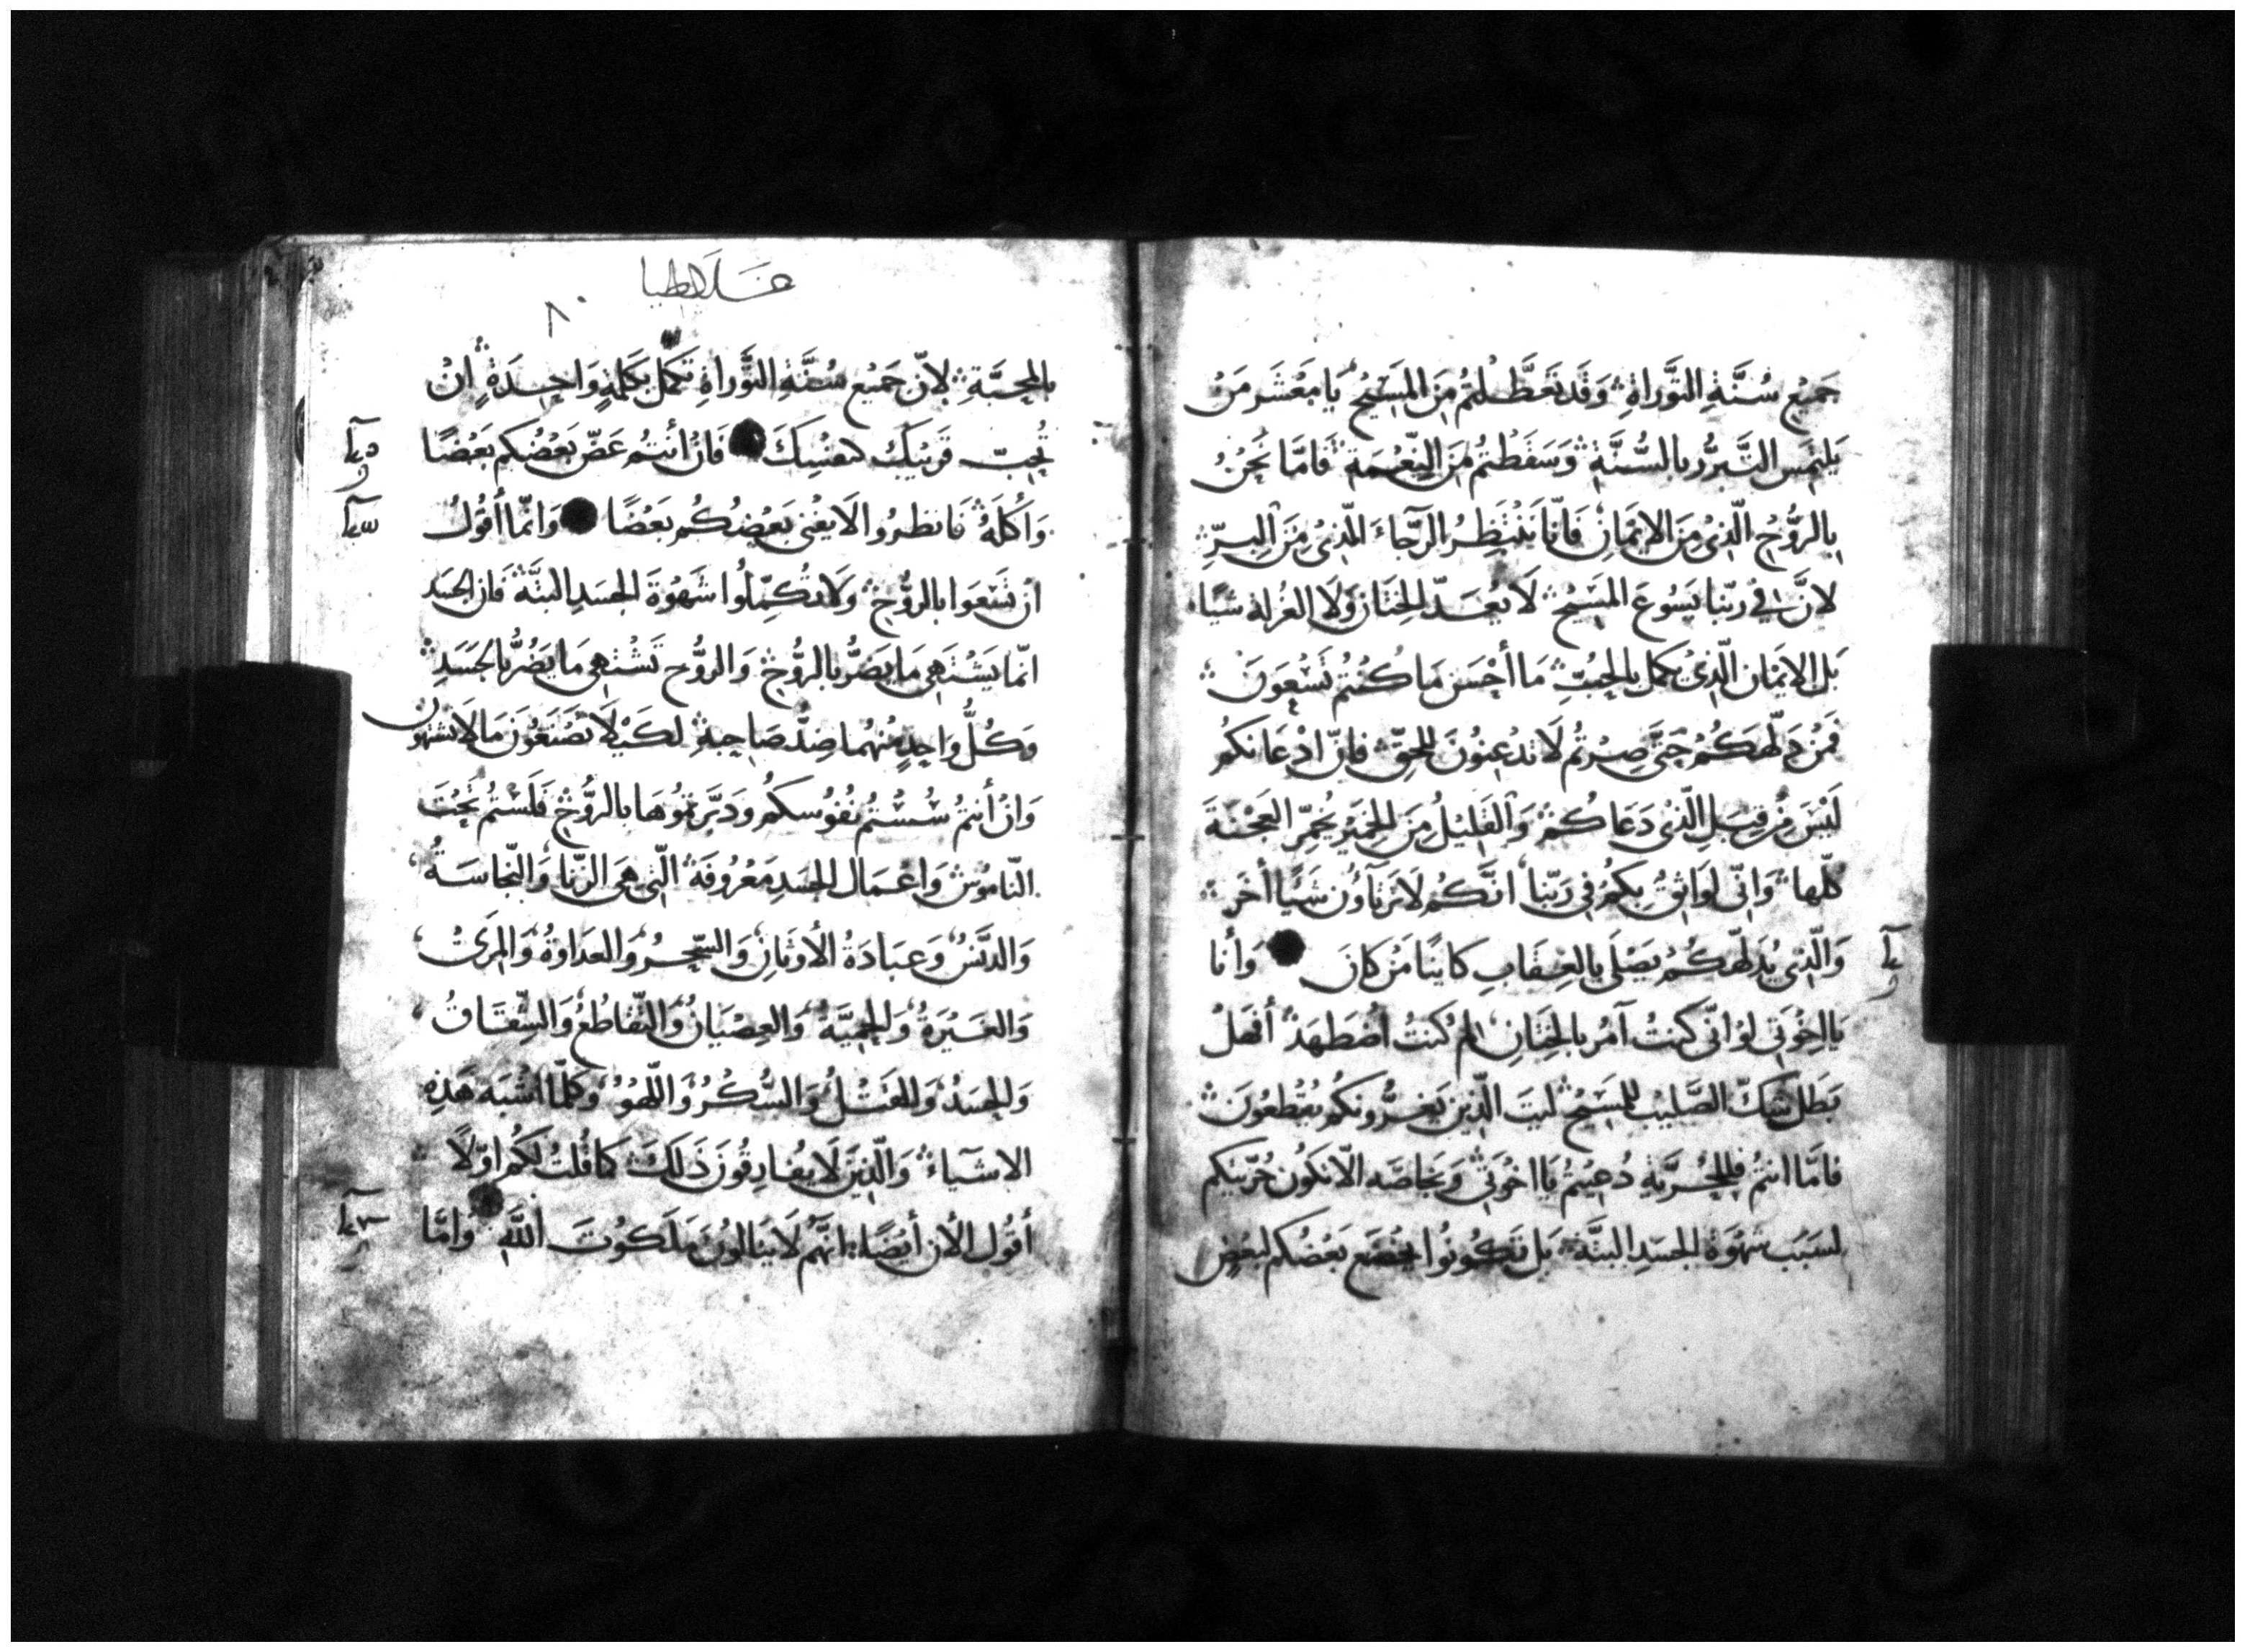 جَمِيْعِ سُنَّةِ التَّوراةِ وَقَد تَعَطَّلتُم مِنَ المَسِّيْحُ يَا مَعْشَر مَنْ
يَلتَمِس التَّبرُّر بالسُّنَّةِ وَسَقَطْتمُ مِنَ النِّعْمَةِ فَامّا نَحْنُ
بِالرُّوْحِ الّذِىْ مِنَ الاِيْمَانِ فَاِنّا نَنْتَظِرُ الرَّجَآءَ الّذِىْ مِنَ البِرِّ
لانَّ فِيْ ربّنا يَسُوعَ المَسِيْحُ لَا يُعَدّ الخِتَان وَلَا الغُرلة شيًا
بَل الايْمَان الّذِىْ يكمل بالحُبِّ مَا أحْسَن مَا كُنتُم تَسْعَونَ
فَمَنْ دَلّهَكُمْ حَتَّى صِرْتُم لَا تذعِنُونَ للحَقِّ فاِنّ اِذْعَانكُم
لَيْسَ مِنْ قِبَلِ الّذِىْ دَعَاكُمْ وَالقَلِيْلُ مِنَ الخَمِيْر يُخَمِّر العَجْنَةَ
كلّها وَانِّى لوَاثِقٌ بِكمْ فِى رَبِّنا انّكُم لَا تَرتآؤُن شَيْئًا أخَر
وَالّذِى يُدَلّهكُمْ يَصْلَى بالعِقَابِ كاينًا مَنْ كانَ وَأنا
يَا اِخْوَتِى لوْ انّى كنتُ آمُر بالخِتَانِ لمْ كنتُ أضْطهَدْ أفهَلْ
بَطل شكّ الصَّلِيْب للمَسِيْحْ ليتَ الّذِيْن يَغرُّونكُم يقْطعُونَ
فامّا انتمُ فللحُرّيّةِ دُعِيْتُمْ يَا اخْوَتِىْ وَبخاصّه الّا تكون حُرّيتكم
لسَبَب شَهْوَةِ الجسَدِ البتَّة بَل تَكُونُوا يخضَع بَعْضُكم لبَعْضٍ
غلاطيا
٨٠
بالمحبَّةِ لانّ جَمِيْع سُنَّة التَّوراةِ تكمّل بكلمةٍ وَاحِدَةٍ أنْ
تُحِبّ قَرِيْبَكَ كنفسِكَ فَانْ أنتُم عَضّ بَعْضُكم بَعْضًا
وَأكَلَهُ فَانظرُوا الَا يفْنى بَعْضُكُم بَعْضًا وَانّما أقوْلُ
أن تَسْعَوا بالرُّوْحْ وَلَا تُكَمّلُوا شَهْوَةَ الجسَدِ البتَّة فَان الجسَد
انّما يَشْتَهِى مَا يَضُرُّ بالرُّوْحْ وَالرُّوْح تَشْتهِى مَا يَضُرُّ بالجَسَدِ
وَكُلُّ وَاحِدٍ مِنهُما ضِدُّ صَاحِبهِ لكَيْلا تَصْنَعُونَ مَا لَا تَشْتهُون
وَانْ أنتمُ سُسْتُم نُفوُسكُم وَدَبَّرتمُوْهَا بالرُّوْحِ فَلَسْتمُ تحْتَ
النّامُوْسْ وَاعْمَال الجسَدِ مَعْرُوفَة الّتِى هِىَ الزِّنا وَالنّجاسَةُ
وَالدَّنَسُ وَعِبَادَةُ الأوثانِ وَالسِّحْرُ وَالعَداوةُ وَالمِرَىُ
وَالغَيْرَةُ وَالحمِيَّةُ وَالعِصْيَانُ وَالتّقاطُعُ وَالشِّقَاقُ
وَالحسَدُ وَالقَتْلُ وَالسُّكْرُ وَاللّهْوُ وَكلّ مَا أشْبَه هَذِهِ
الاشيَآءْ وَالّذِيْنَ لَا يفَارِقُونَ ذَلكَ كَا قُلتُ لكُم اوّلًا
أقُول الأنَ أيْضًا انَّهُم لَا ينَالونَ مَلَكوُتَ اللّهِ وَامّا